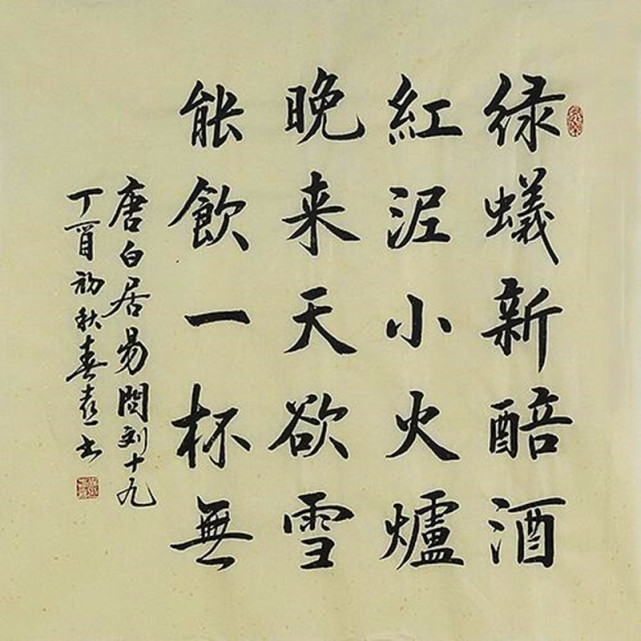 绿蟻新醅酒
紅泥小火爐
晚来天欲雪
能飲一杯無
唐白居易問刘十九
丁酉初秋春意书